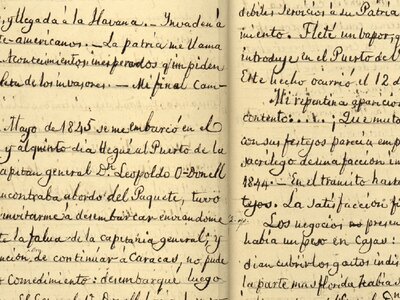 , y llegada á la Havana. – Invaden á
te-americanos. – La patria me llama
Acontecimientos inesperados q. impiden
leta de los invasores – Mi final Cam-
Mayo de 1845 se me embarcó en el
y al quinto dia llegué al Puerto de la
apitan general Dn. Leopoldo O-Donell
ncontraba abordo del Paquete, tuvo
invitarme á desembarcar enviandome
te la falua de la capitania general; y
nción de continuar a Caracas, no pude
Comedimiento: desembarque luego
debiles Servicios a su Patria
imiento. Fleté un bapor, q
introduje en el Puerto de V
Este hecho ocurrió el 12 d
Mi repentina aparicion
contento. . . . ¡ Que muto
con sus festejos parecia emp
sacrilego de una faccion en
1844 – En el transito hasta
tejos. La satisfacción f
Los negocios no presen
habia un peso en Cajas:
dian cubrir los gastos indis
la parte mas florida habia s